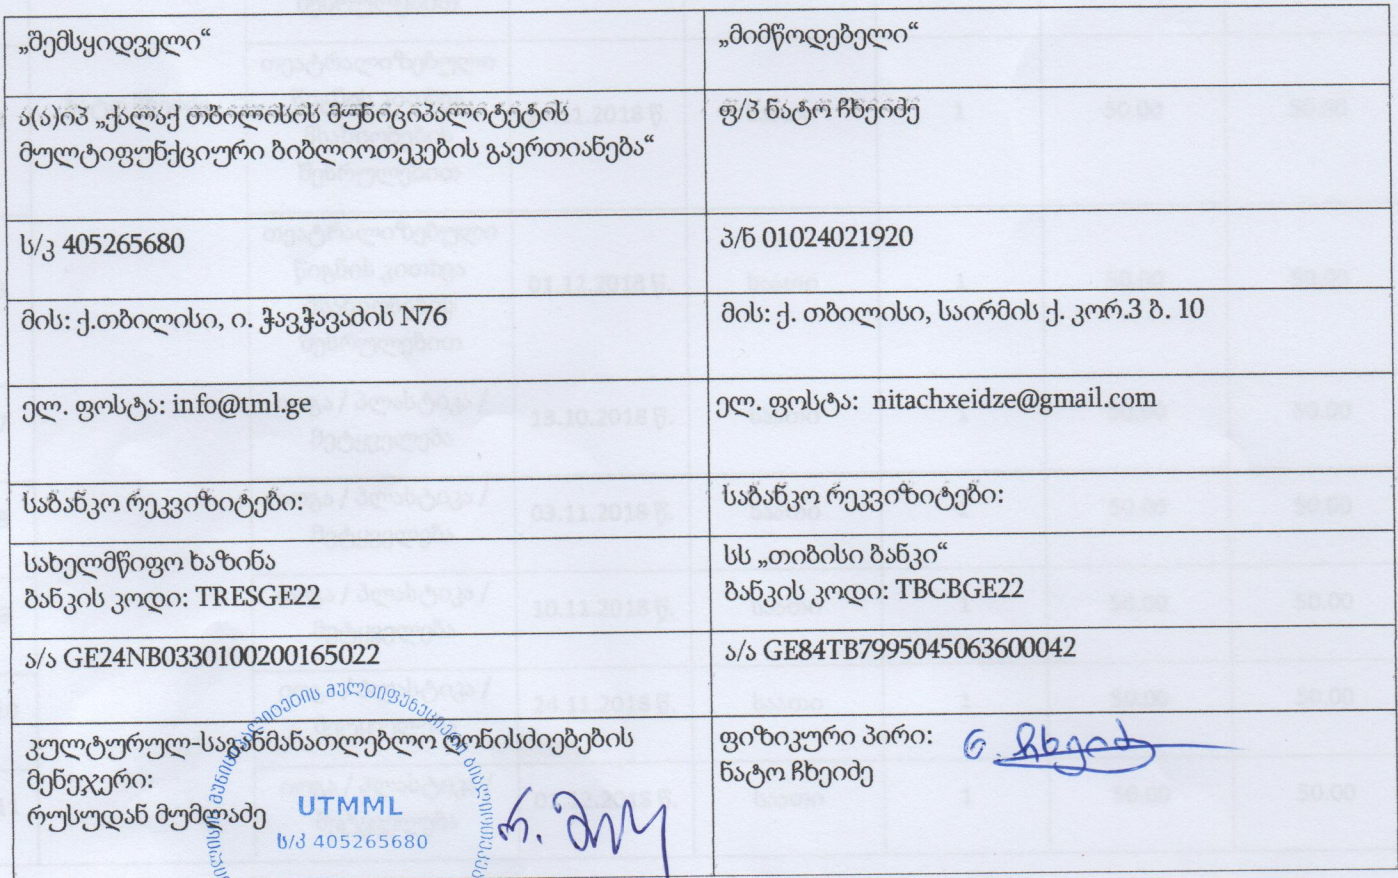 „შემსყიდველი“
„მიმწოდებელი“
ა(ა)იპ „ქალაქ თბილისის მუნიციპალიტეტის
მულტიფუნქციური ბიბლიოთეკების გაერთიანება“
ფ/პ ნატო ჩხეიძე
ს/კ 405265680
პ/ნ 01024021920
მის: ქ.თბილისი, ი. ჭავჭავაძის N76
მის: ქ. თბილისი, საირმის ქ. კორ.3 ბ. 10
ელ. ფოსტა: info@tml.ge
ელ. ფოსტა: nitachxeidze@gmail.com
საბანკო რეკვიზიტები:
საბანკო რეკვიზიტები:
სახელმწიფო ხაზინა
ბანკის კოდი: TRESGE22
სს „თიბისი ბანკი“
ბანკის კოდი: TBCBGE22
ა/ა GE24NB0330100200165022
ა/ა GE84TB7995045063600042
კულტურულ-საგანმანათლებლო ღონისძიებების
მენეჯერი:
რუსუდან მუმლაძე
ფიზიკური პირი:
ნატო ჩხეიძე
ნ. ჩხეიძე
UTMML
ს/კ 405265680